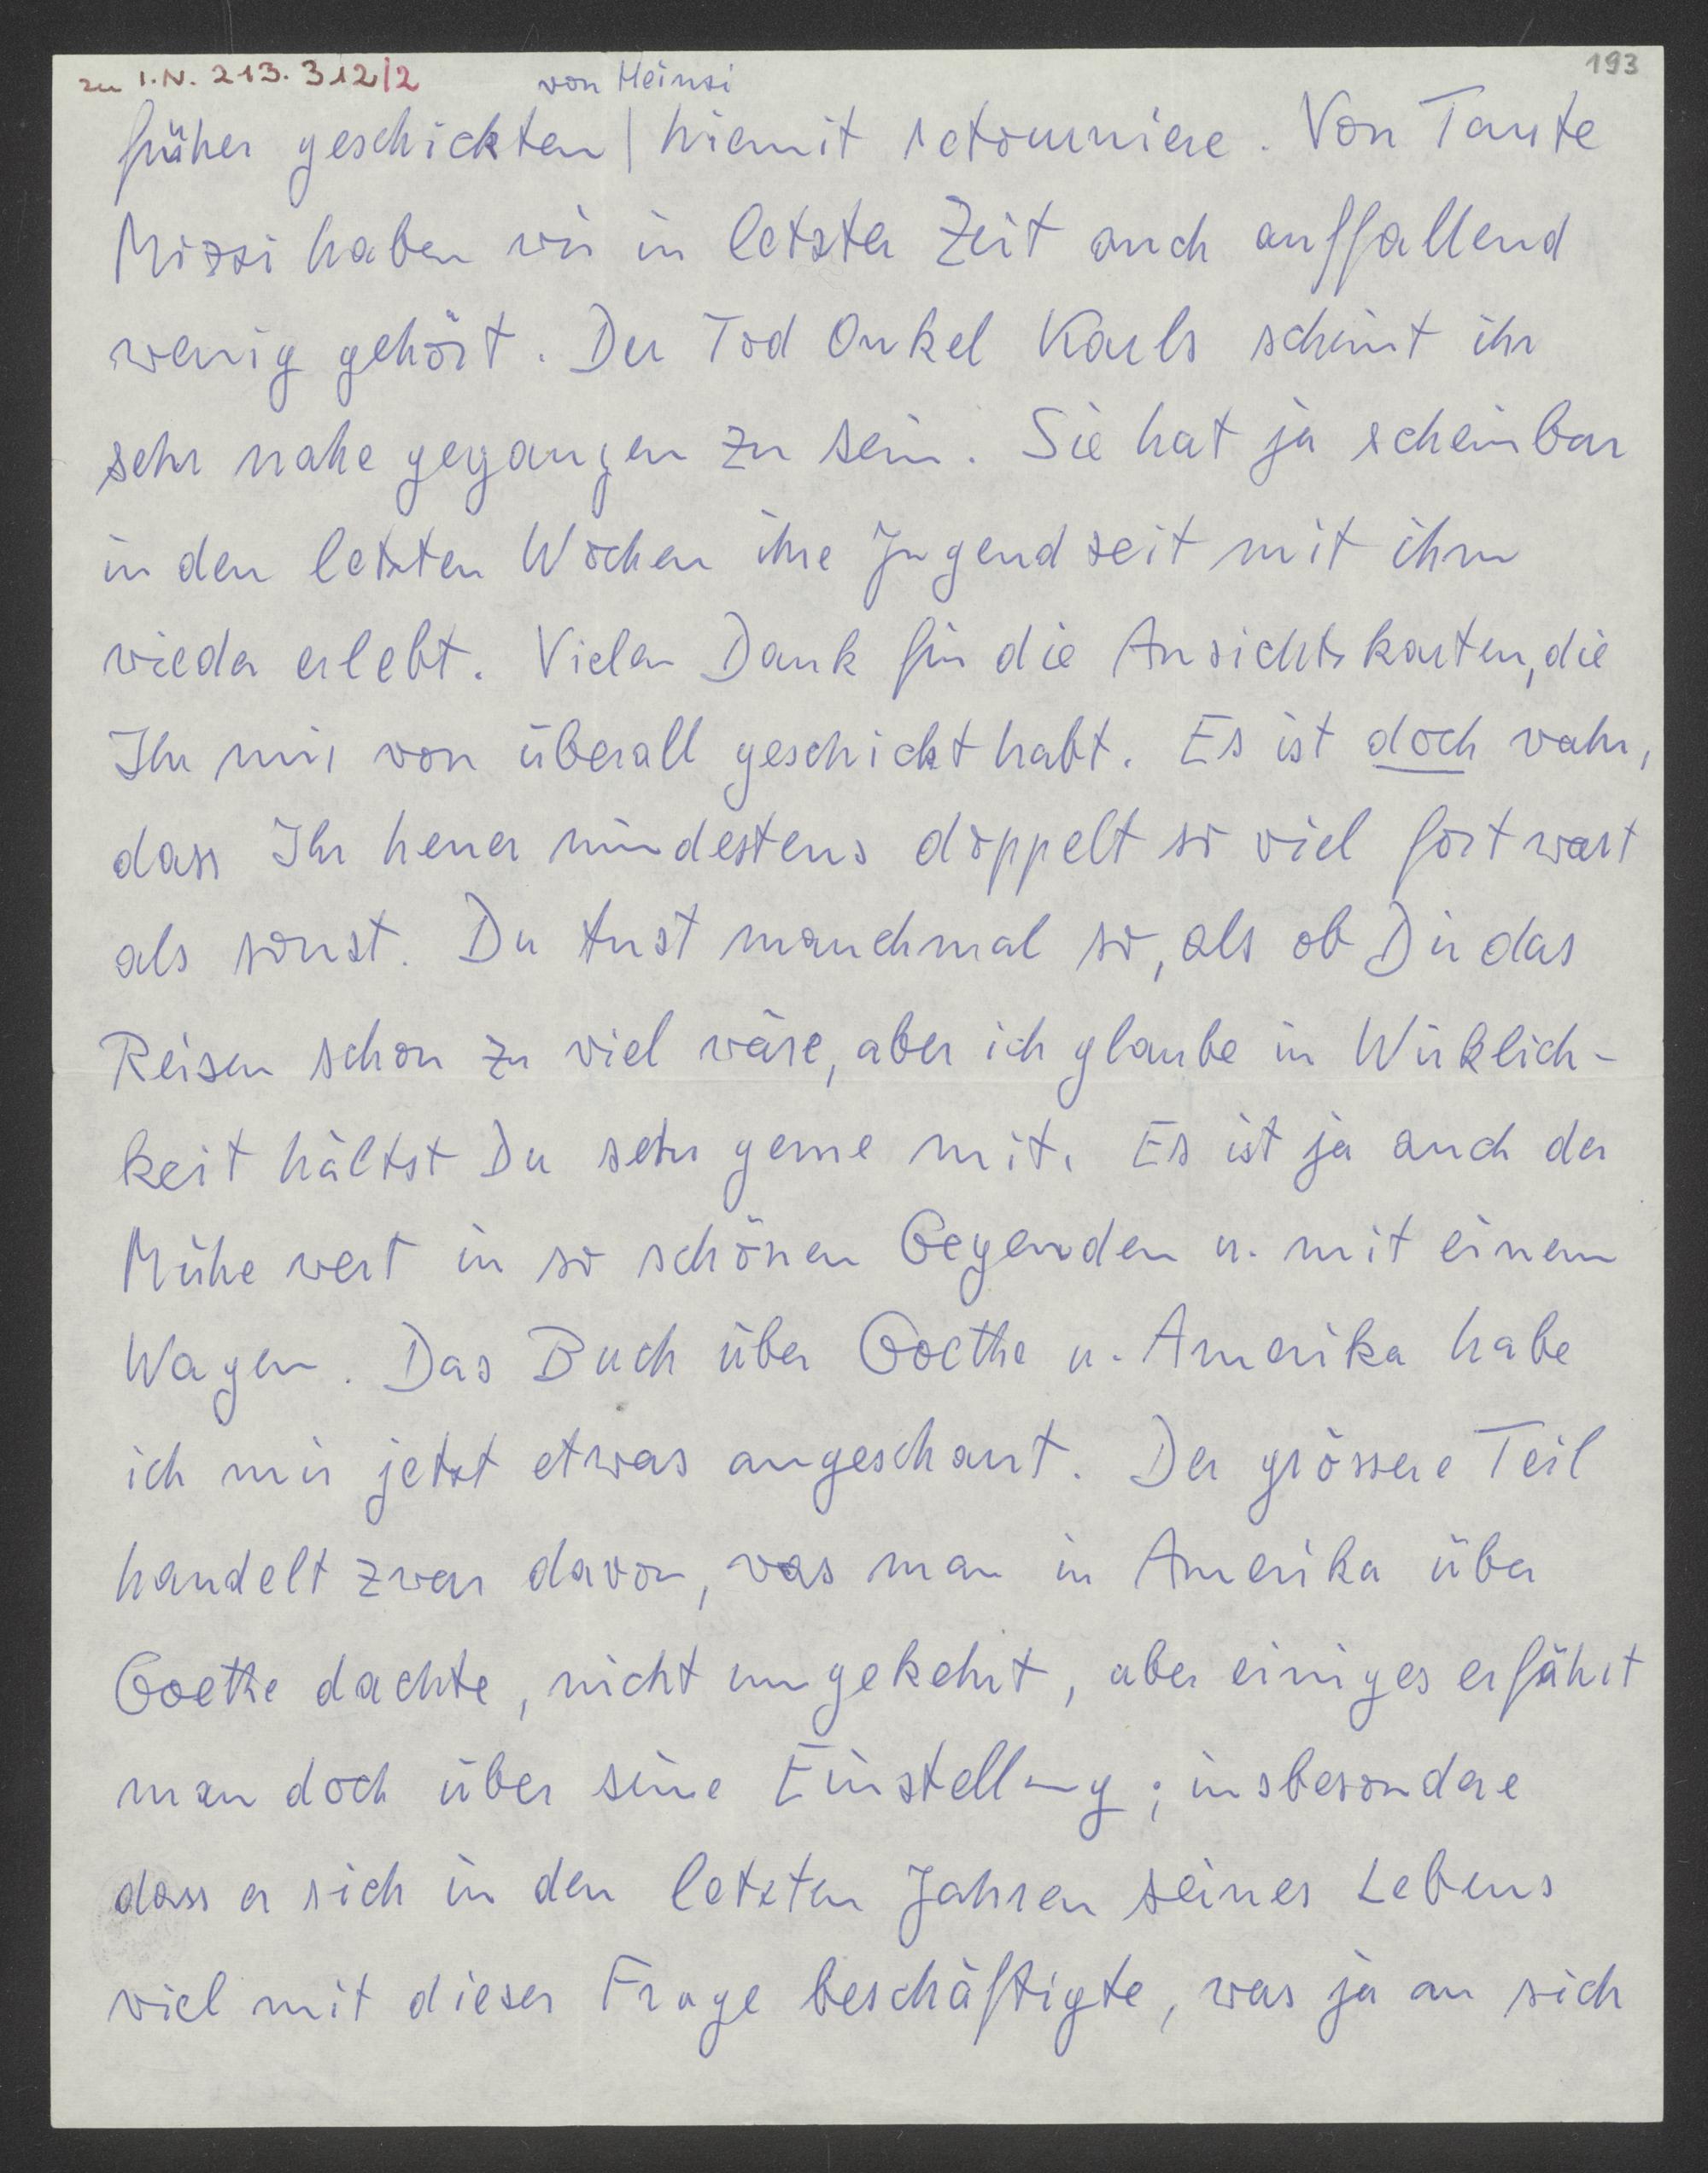 zu I.N. 213.312/2
193
von Heinzi
früher geschickten | hiemit retourniere. Von Tante
Mizzi haben wir in letzter Zeit auch auffallend
wenig gehört. Der Tod Onkel Karls scheint ihr
sehr nahe gegangen zu sein. Sie hat ja scheinbar
in den letzten Wochen ihre Jugendzeit mit ihm
wieder erlebt. Vielen Dank für die Ansichtskarten, die
Ihr mir von überall geschickt habt. Es ist doch wahr,
dass Ihr heuer mindestens doppelt so viel fort wart
als sonst. Du tust manchmal so, als ob Dir das
Reisen schon zu viel wäre, aber ich glaube in Wirklich-
keit hältst Du sehr gerne mit. Es ist ja auch der
Mühe wert in so schönen Gegenden u. mit einem
Wagen. Das Buch über Goethe u. Amerika habe
ich mir jetzt etwas angeschaut. Der grössere Teil
handelt zwar davon, was man in Amerika über
Goethe dachte, nicht umgekehrt, aber einiges erfährt
man doch über seine Einstellung; insbesondere
dass er sich in den letzten Jahren seines Lebens
viel mit dieser Frage beschäftigte, was ja an sich